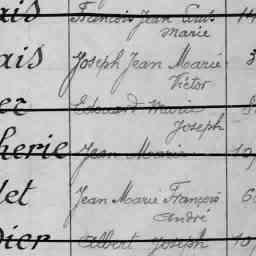 ais François Jean Louis 14
Marie
ais Joseph Jean Marie 3
Victor
er Edouard Marie
Joseph
herie Jean Marie 10
let Jean Marie François 6
André
dier Albert Joseph 10